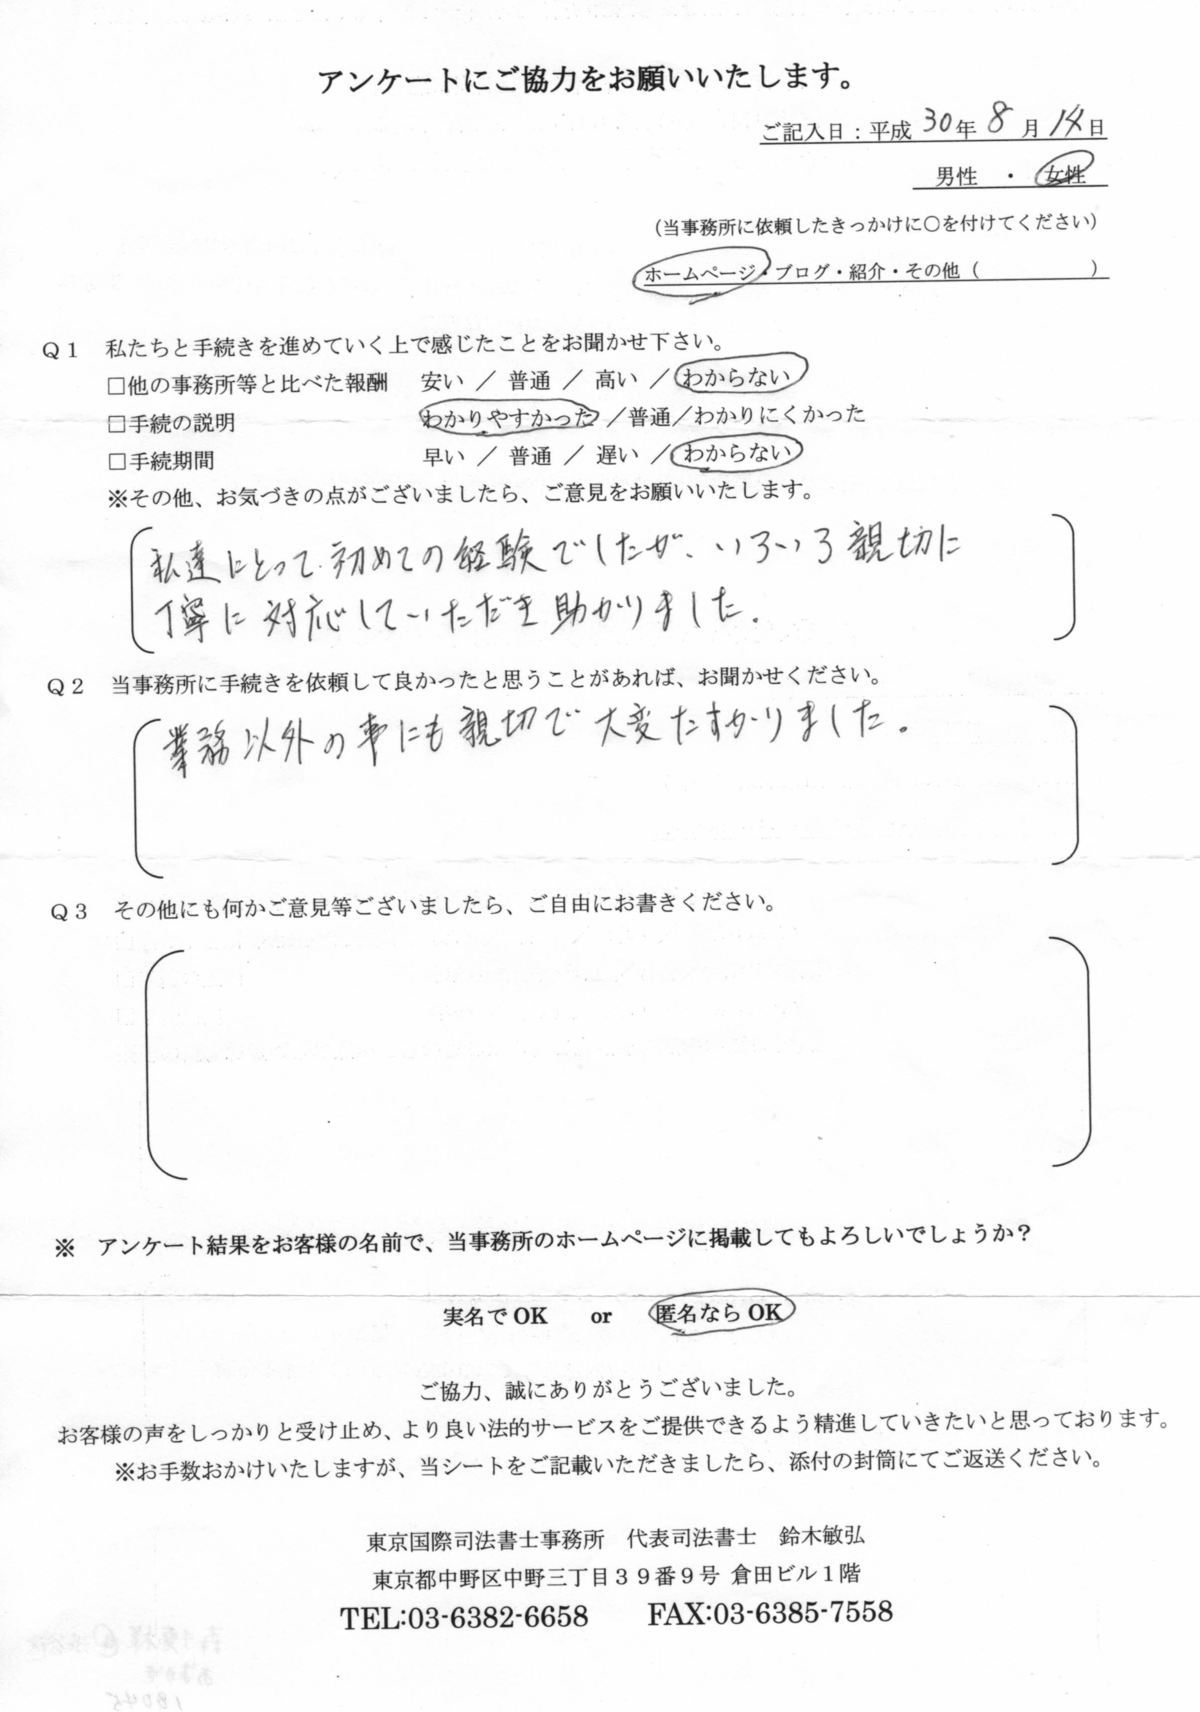 アンケートにご協力をお願いいたします。
ご記入日：平成 30年 8月 14日
男性 ・ 女性
（当事務所に依頼したきっかけに〇を付けてください）
ホームページ・ブログ・紹介・その他（ ）
Ｑ１ 私たちと手続きを進めていく上で感じたことをお聞かせ下さい。
□他の事務所等と比べた報酬 安い ／ 普通 ／ 高い ／ わからない
□手続の説明 わかりやすかった ／普通／わかりにくかった
□手続期間 早い ／ 普通 ／ 遅い ／ わからない
※その他、お気づきの点がございましたら、ご意見をお願いいたします。
私達にとって初めての経験でしたが、いろいろ親切に
丁寧に対応していただき助かりました。
Ｑ２ 当事務所に手続きを依頼して良かったと思うことがあれば、お聞かせください。
業務以外の事にも親切で大変たすかりました。
Ｑ３ その他にも何かご意見等ございましたら、ご自由にお書きください。
※ アンケート結果をお客様の名前で、当事務所のホームページに掲載してもよろしいでしょうか？
実名でOK or 匿名ならOK
ご協力、誠にありがとうございました。
お客様の声をしっかりと受け止め、より良い法的サービスをご提供できるよう精進していきたいと思っております。
※お手数おかけいたしますが、当シートをご記載いただきましたら、添付の封筒にてご返送ください。
東京国際司法書士事務所 代表司法書士 鈴木敏弘
東京都中野区中野三丁目３９番９号 倉田ビル１階
TEL:03-6382-6658 FAX:03-6385-7558